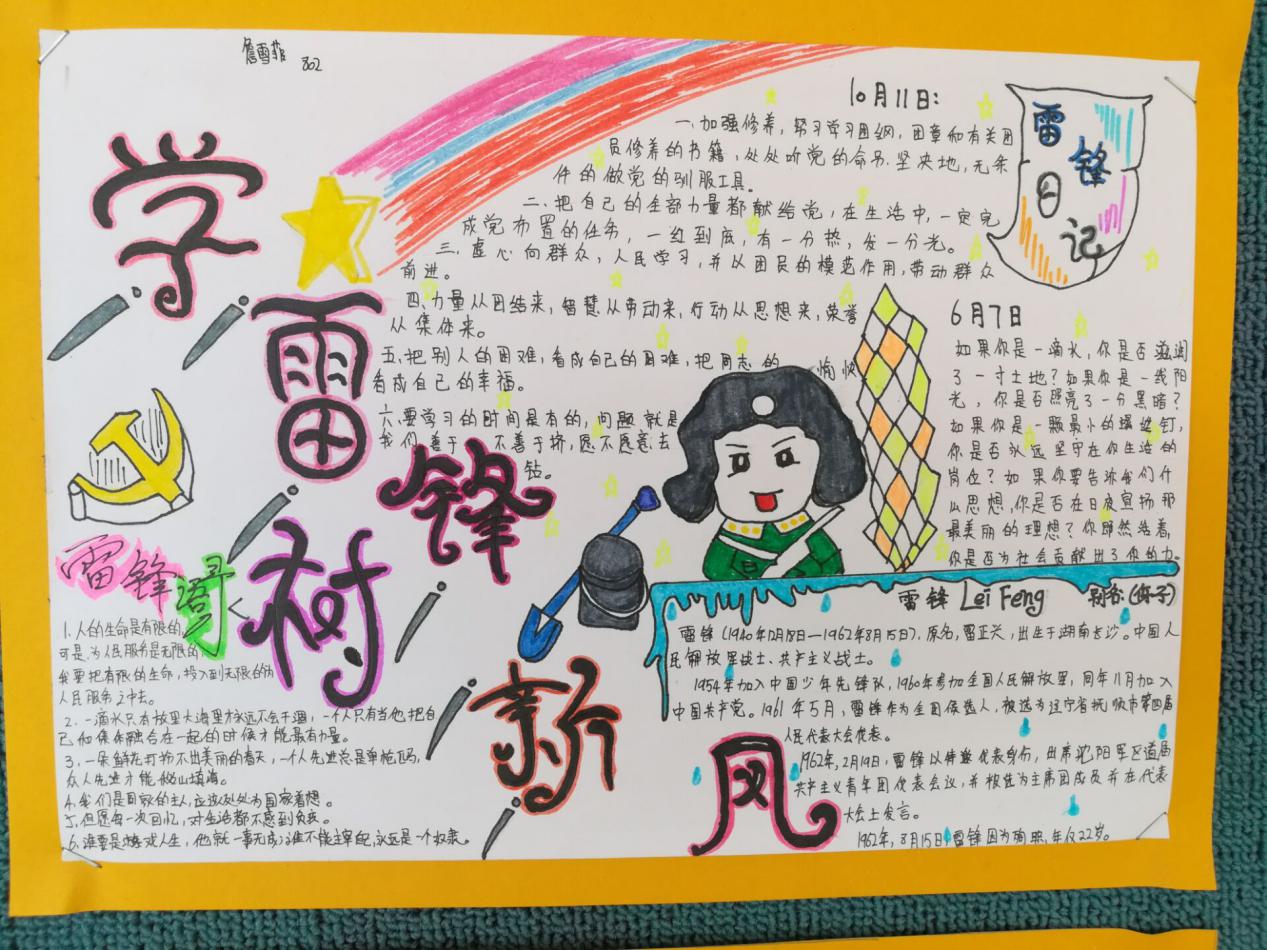 詹雪菲 802
学雷锋树新风
雷锋日记
10月11日:
一、加强修养,努习学习团纲,团章和有关团
员修养的书籍,处处听党的命令.坚决地,无条
件的做党的驯服工具。
二、把自己的全部力量都献给党,在生活中,一定完
成党布置的任务,一红到底,有一分热,发一分光。
三、虚心向群众,人民学习,并以团员的模范作用,带动群众
前进。
四、力量从团结来,智慧从劳动来,行动从思想来,荣誉
从集体来。
五、把别人的困难,看成自己的困难,把同志的愉快
看成自己的幸福。
六、要学习的时间是有的,问题就是
我们善于不善于挤,愿不愿意去
钻。
6月7日
如果你是一滴水,你是否滋润
了一寸土地?如果你是一线阳
光,你是否照亮了一分黑暗?
如果你是一颗最小的螺丝钉,
你是否永远坚守在你生活的
岗位?如果你要告诉我们什
么思想,你是否在日夜宣扬那
最美丽的理想?你既然活着,
你是否为社会贡献出了你的力。
雷锋语
1.人的生命是有限的,
可是,为人民服务是无限的,
我要把有限的生命,投入到无限的为
人民服务之中去。
2.一滴水只有放里大海里才永远不会干涸,一个人只有当他把自
己和集体融合在一起的时候才能最有力量。
3.一朵鲜花打扮不出美丽的春天,一个人先进总是单枪匹马,
众人先进才能移山填海。
4.我们是国家的主人,应该处处为国家着想。
5.但愿每一次回忆,对生活都不感到负疚。
6.谁要是游戏人生,他就一事无成;谁不能主宰自己,永远是一个奴隶。
雷锋 Lei Feng 别名:(伢子)
雷锋(1940年12月18日—1962年8月15日),原名,雷正兴,出生于湖南长沙。中国人
民解放军战士、共产主义战士。
1954年加入中国少年先锋队,1960年参加全国人民解放军,同年11月加入
中国共产党。1961年5月,雷锋作为全团候选人,被选为辽宁省抚顺市第四届
人民代表大会代表。
1962年,2月19日,雷锋以特邀代表身份,出席沈阳军区首届
共产主义青年团代表会议,并被选为主席团成员并在代表
大会上发言。
1962年,8月15日,雷锋因为殉职,年仅22岁。